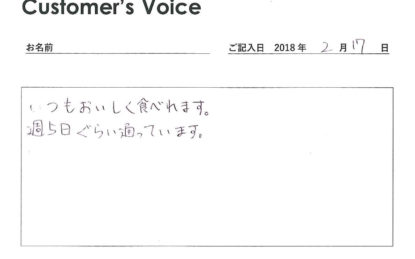 Customer's Voice
お名前
ご記入日 2018年 2月 17日
いつもおいしく食べれます。
週5日ぐらい通っています。